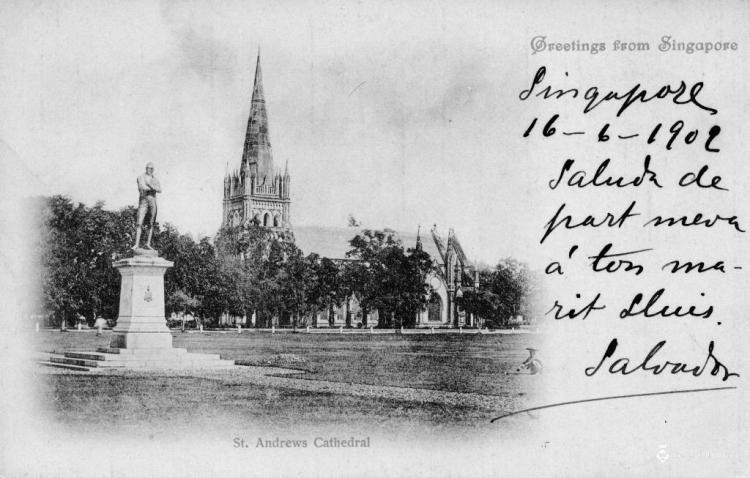 Greetings from Singapore
Singapore
16-6-1902
Saluda de
part meva
á ton ma-
rit Lluis.
Salvador
St. Andrews Cathedral